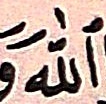 ٱللَّهُ وَ